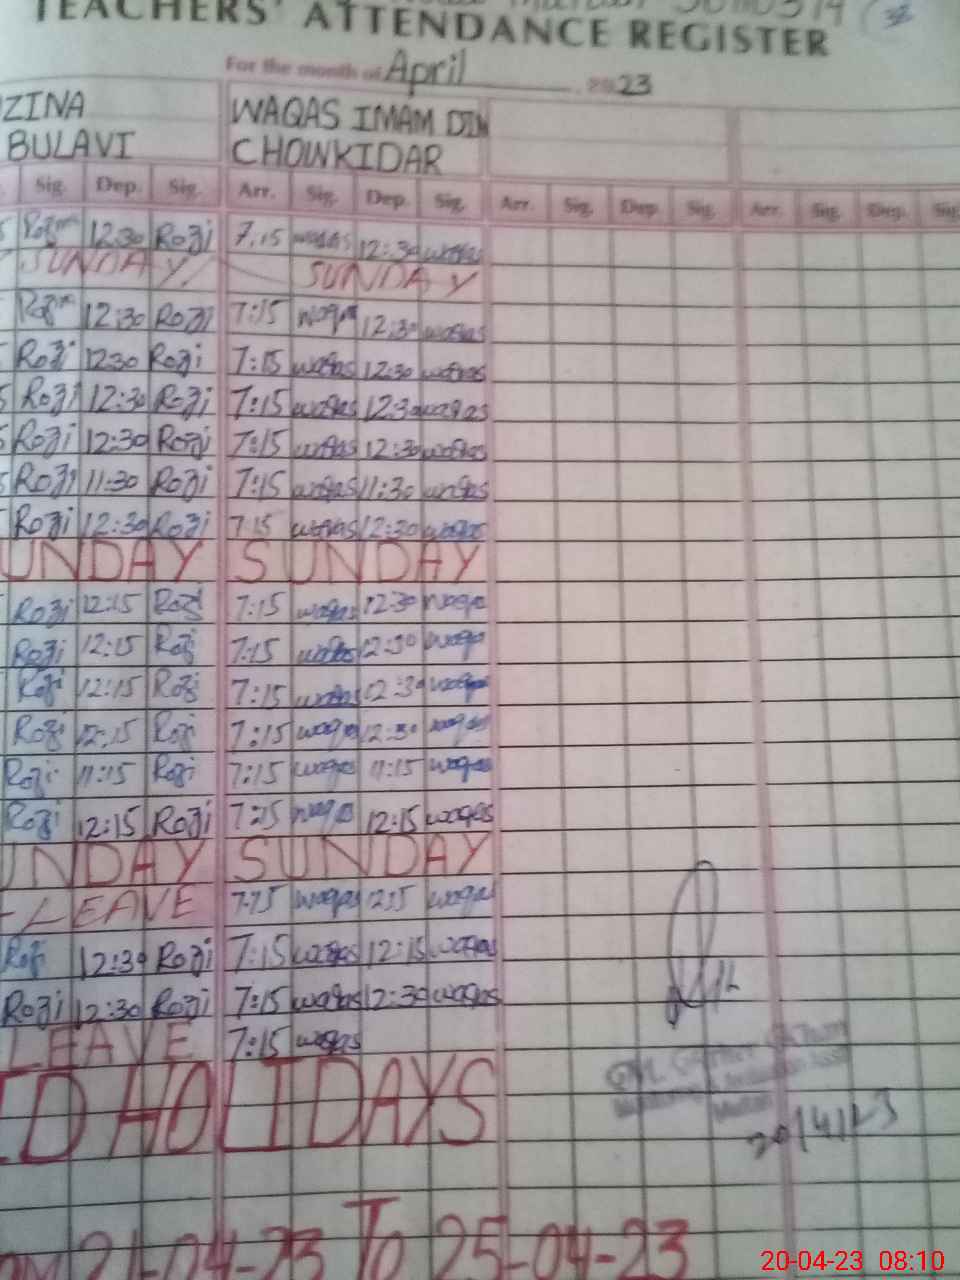 TEACHERS' ATTENDANCE REGISTER
For the month of April 2023
ZINA WAQAS IMAM DIN
BULAVI CHOWKIDAR
Sig. Dep. Sig. Arr. Sig. Dep. Sig. Arr. Sig. Dep. Sig. Arr. Sig. Dep. Sig.
12:30 Rozi 7.15 waqas 12:30 waqas
SUNDAY SUNDAY
12:30 Rozi 7:15 waqas 12:30 waqas
Rozi 1230 Rozi 7:15 waqas 12:30 waqas
Rozi 12:30 Rozi 7:15 waqas 12:30 waqas
Rozi 12:30 Rozi 7:15 waqas 12:30 waqas
Rozi 11:30 Rozi 7:15 waqas 11:30 waqas
Rozi 12:30 Rozi 7 15 waqas 12:30 waqas
UNDAY SUNDAY
Rozi 12:15 Rozi 7:15 waqas 12:30 waqas
Rozi 12:15 Rozi 7:15 waqas 12:30 waqas
Rozi 12:15 Rozi 7:15 waqas 12:30 waqas
Rozi 12:15 Rozi 7:15 waqas 12:30 waqas
Rozi 11:15 Rozi 7:15 waqas 11:15 waqas
Rozi 12:15 Rozi 7:15 waqas 12:15 waqas
UNDAY SUNDAY
LEAVE 7:15 waqas 12:15 waqas
Rozi 12:30 Rozi 7:15 waqas 12:15 waqas
Rozi 12:30 Rozi 7:15 waqas 12:30 waqas
LEAVE 7:15 waqas
ID HOLIDAYS
20/4/23
21-04-23 To 25-04-23
20-04-23 08:10